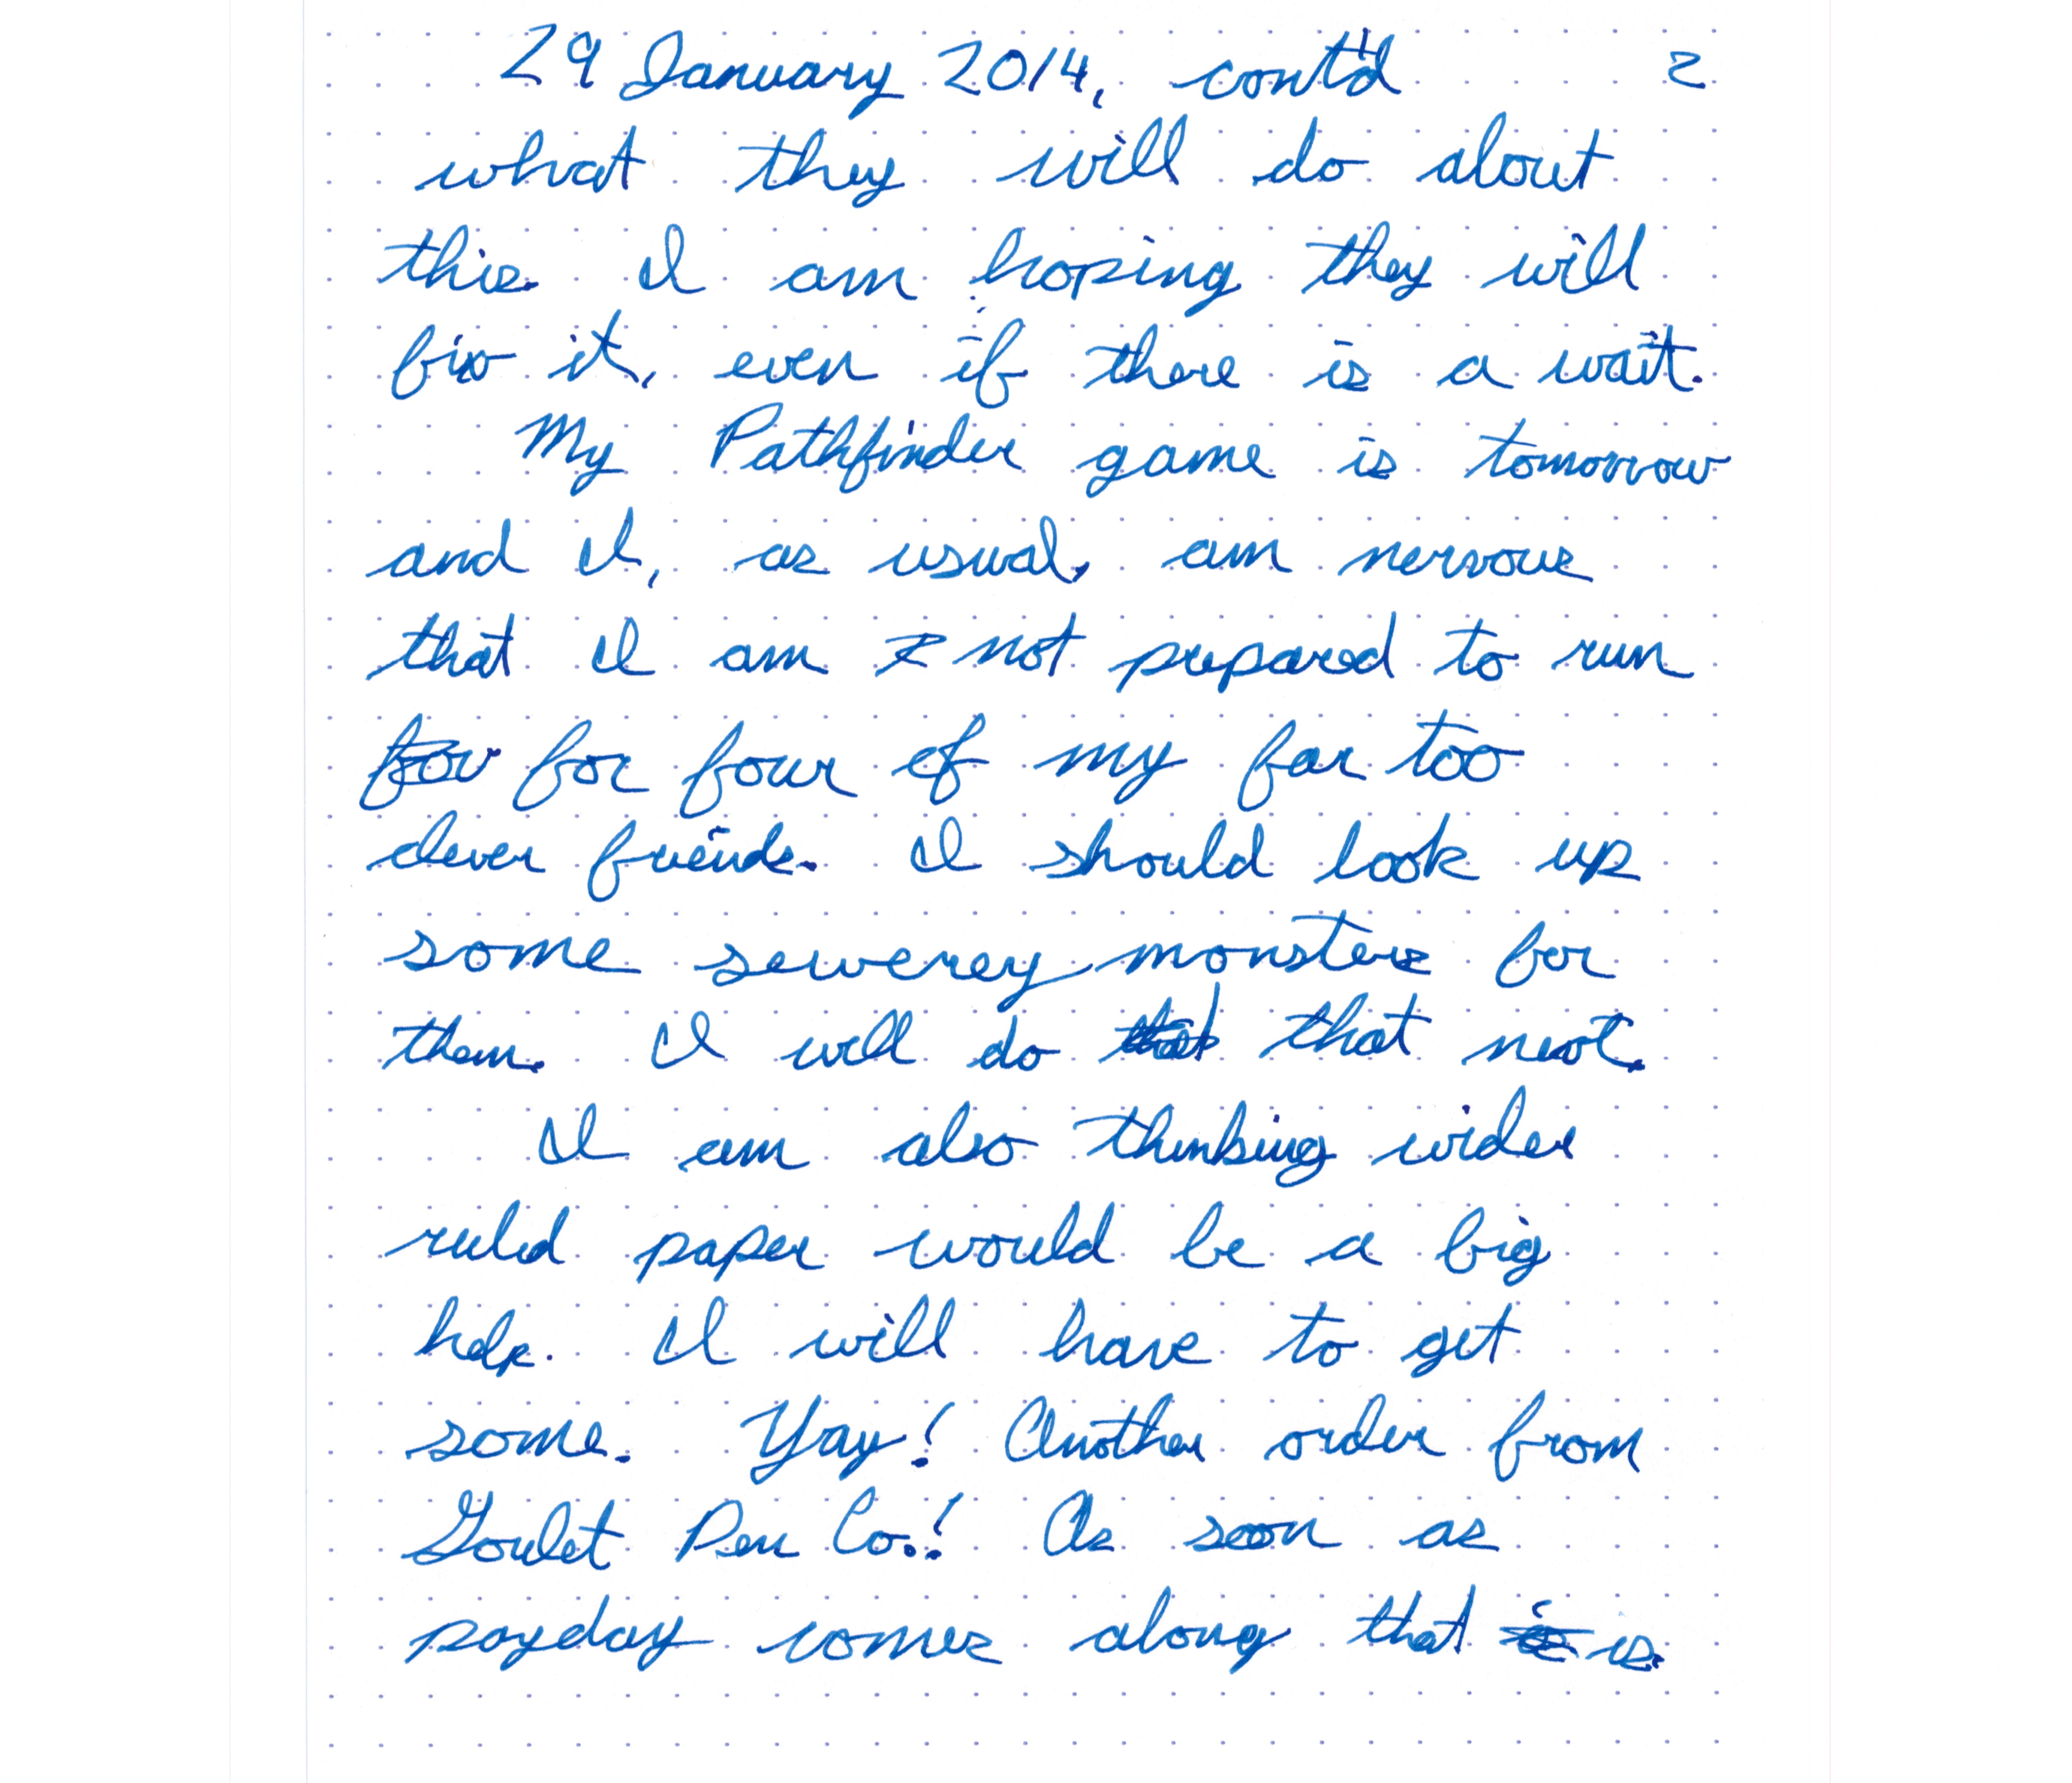 29 January 2014, cont'd 2
what they will do about
this. I am hoping they will
fix it, even if there is a wait.
My Pathfinder game is tomorrow
and I, as usual, am nervous
that I am not prepared to run
for for four of my far too
clever friends. I should look up
some sewerey monsters for
them. I will do that that next.
I am also thinking wider
ruled paper would be a big
help. I will have to get
some. Yay! Another order from
Goulet Pen Co.! As soon as
payday comes along that is is.